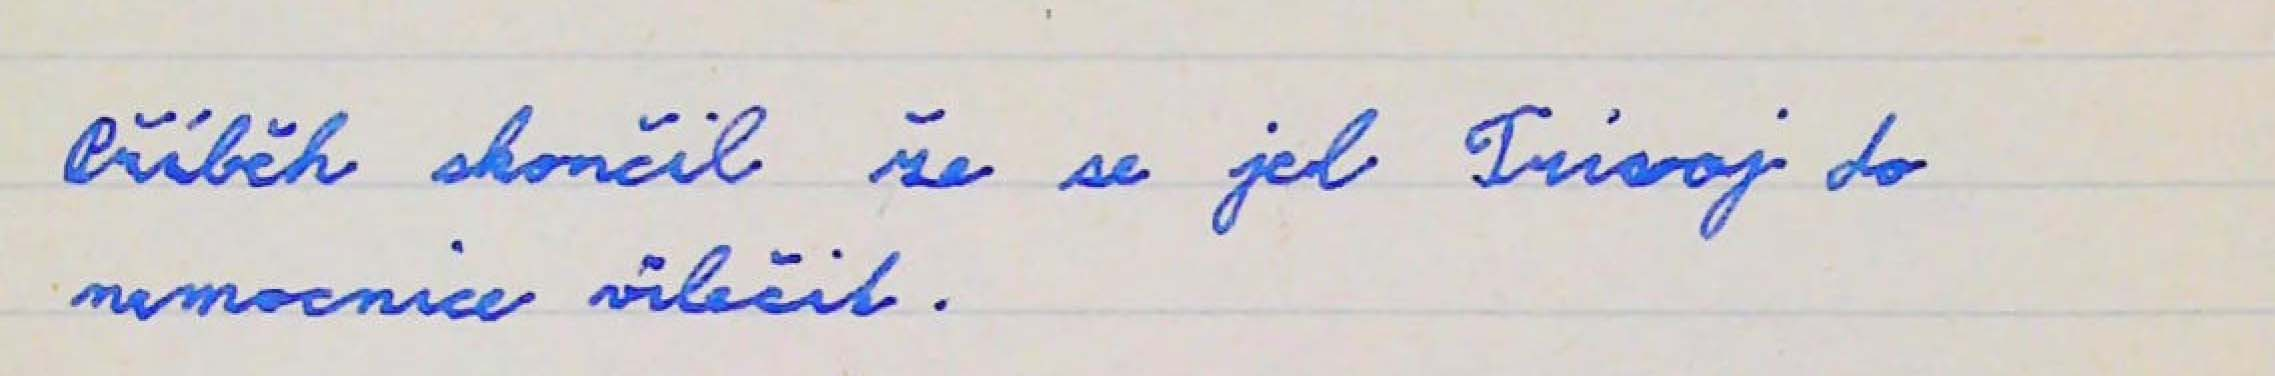 Příběh skončil že se jel Trivoj do
nemocnice vilečit.